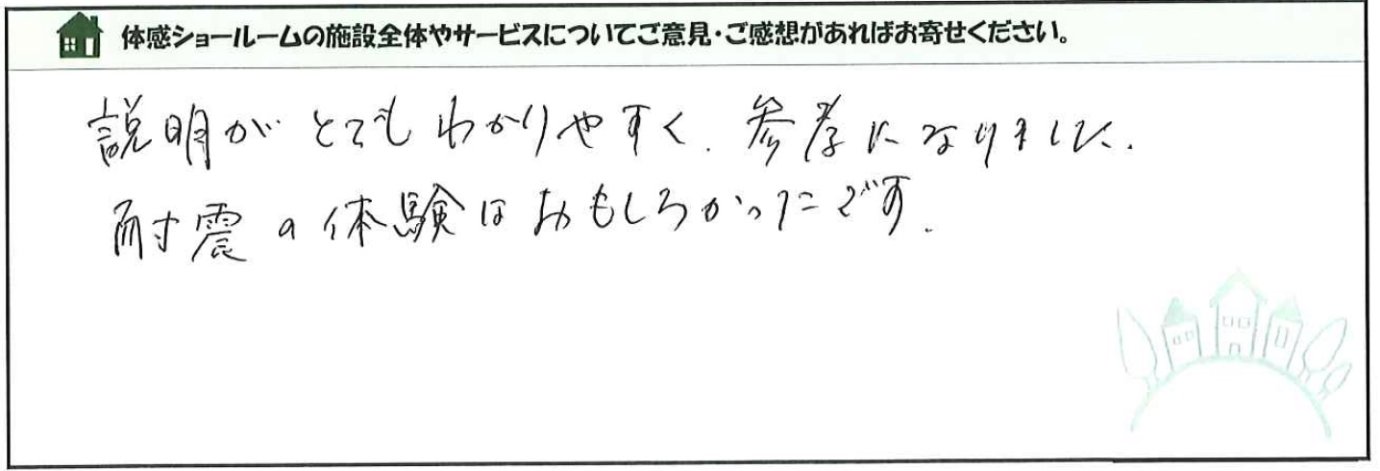 体感ショールームの施設全体やサービスについてご意見・ご感想があればお寄せください。
説明がとてもわかりやすく、参考になりました。
耐震の体験はおもしろかったです。